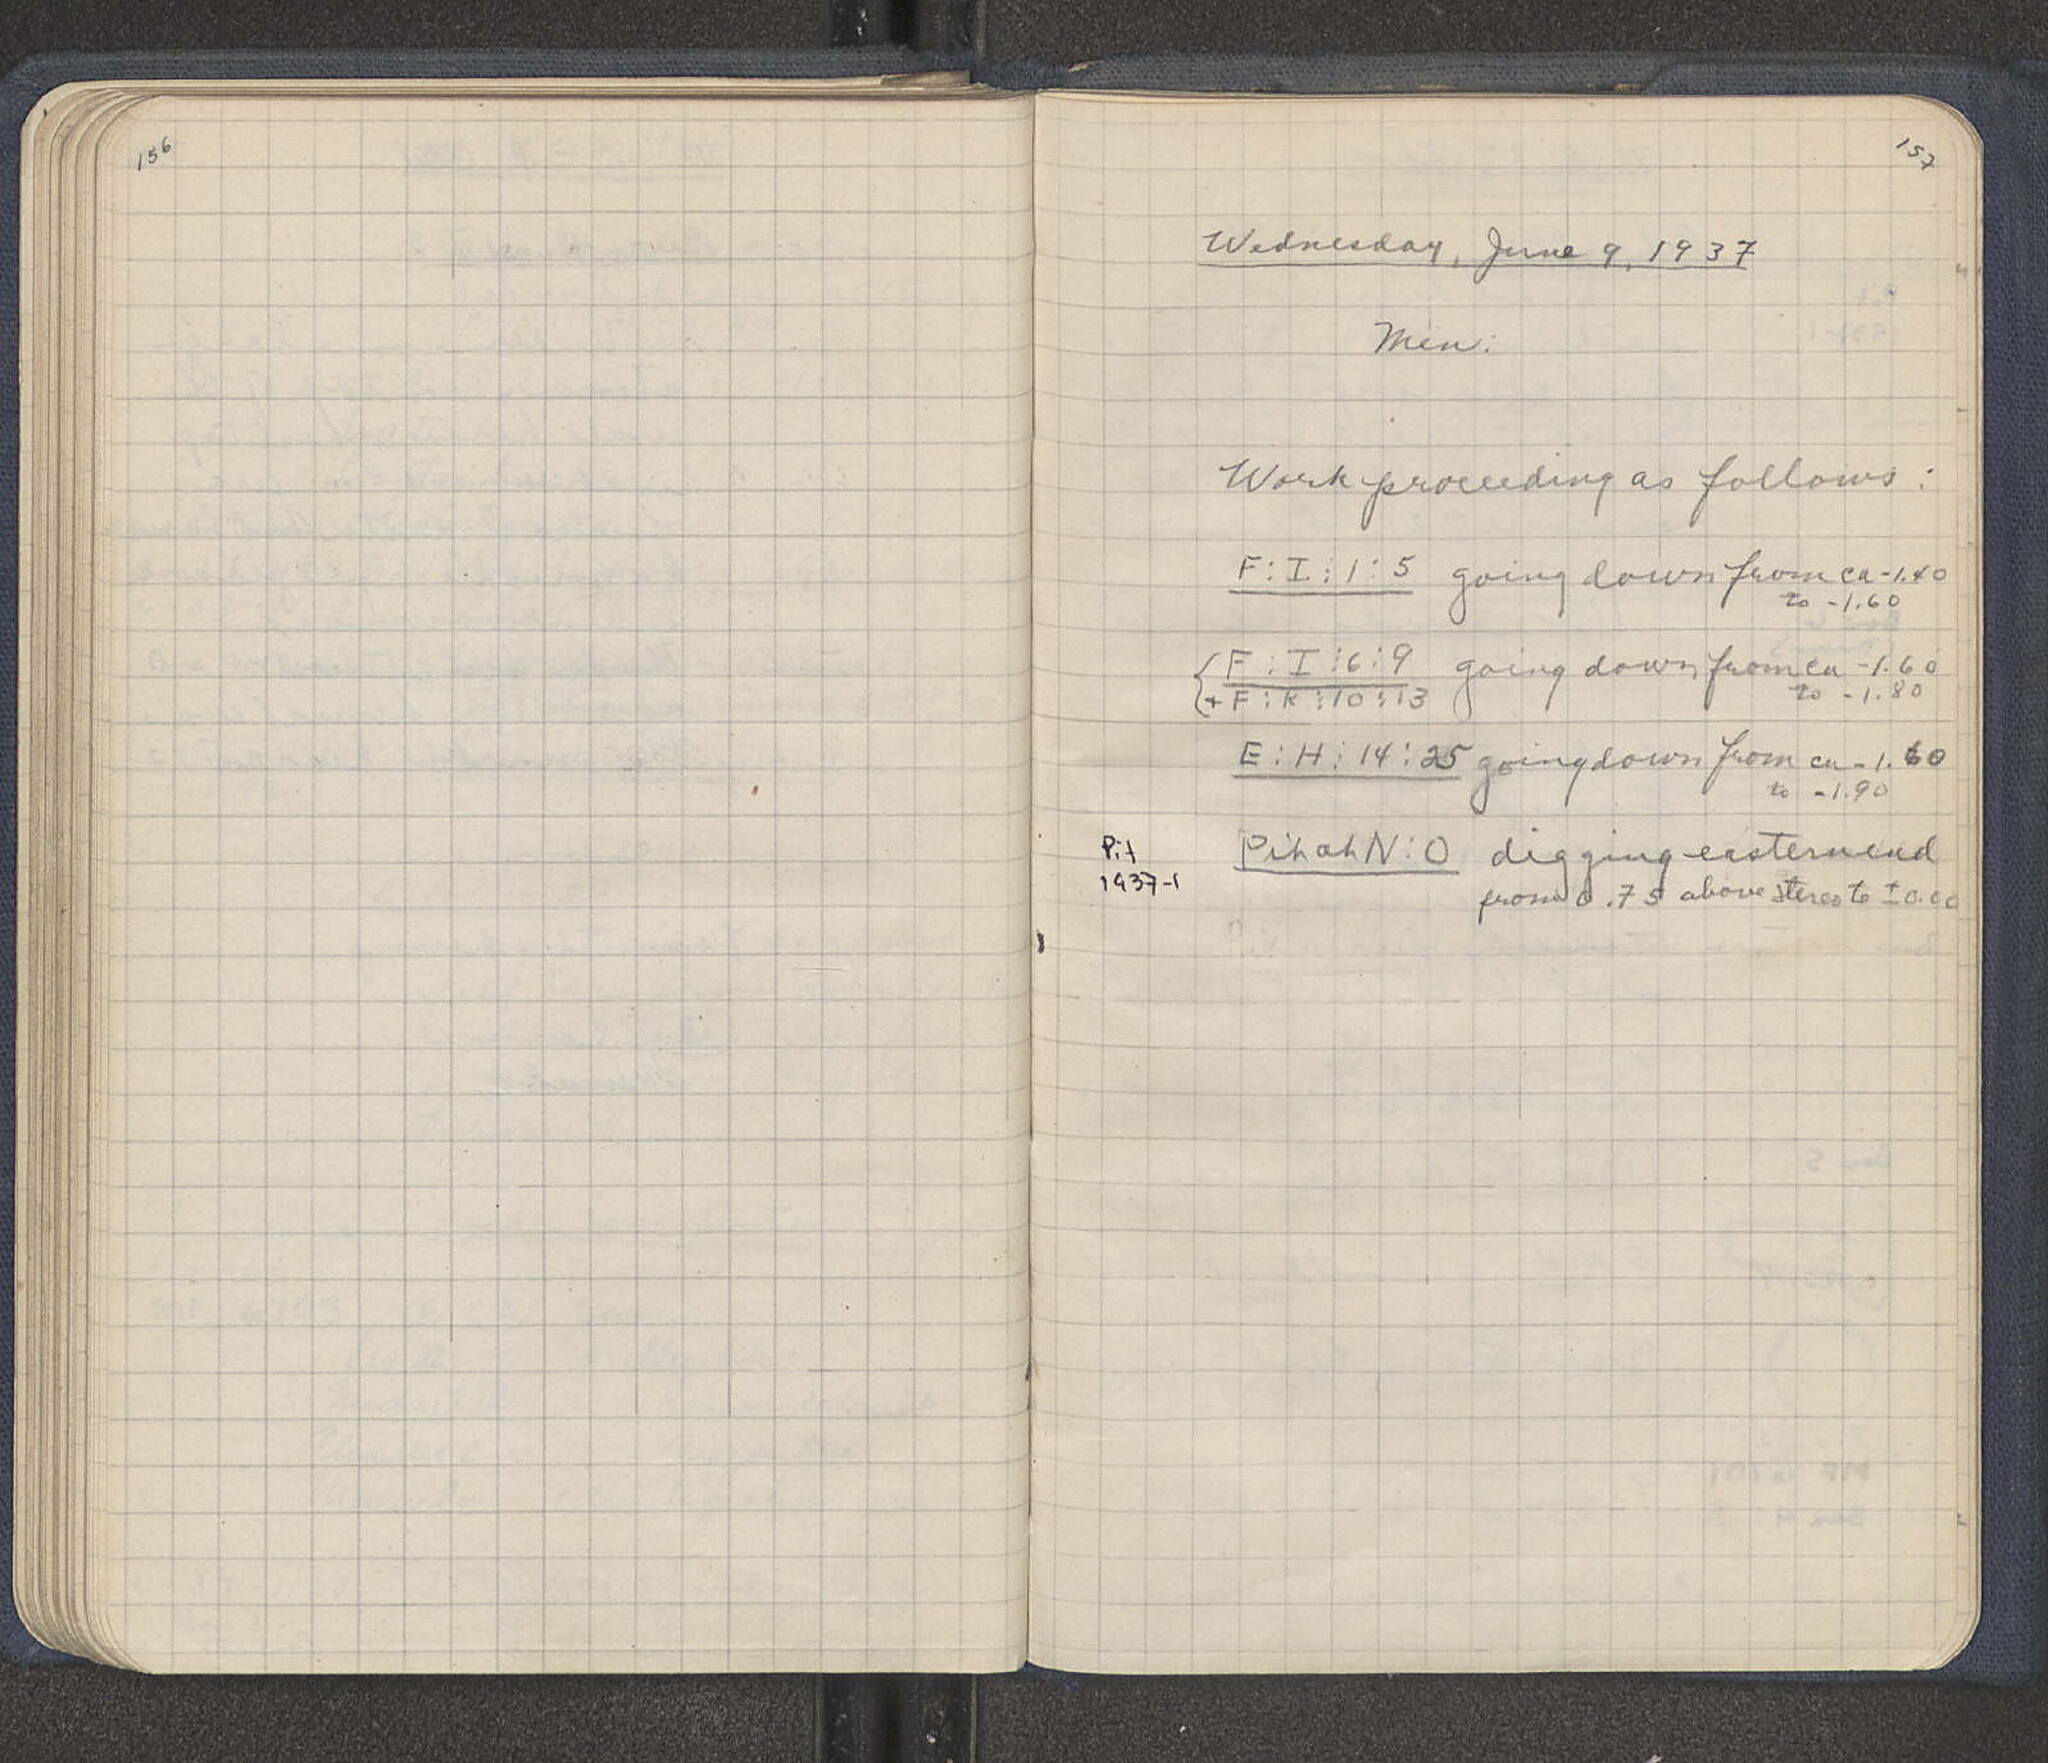 156
157
Wednesday, June 9, 1937
Men:
Work proceeding as follows:
F:I:1:5 going down from ca -1.40
to -1.60
F:I:6:9 going down from ca -1.60
+ F:K:10:13 to -1.80
E:H:14:25 going down from ca -1.60
to -1.90
Pit
1937-1
Pit at N:O digging eastern end
from 0.75 above stereo to ±0.00